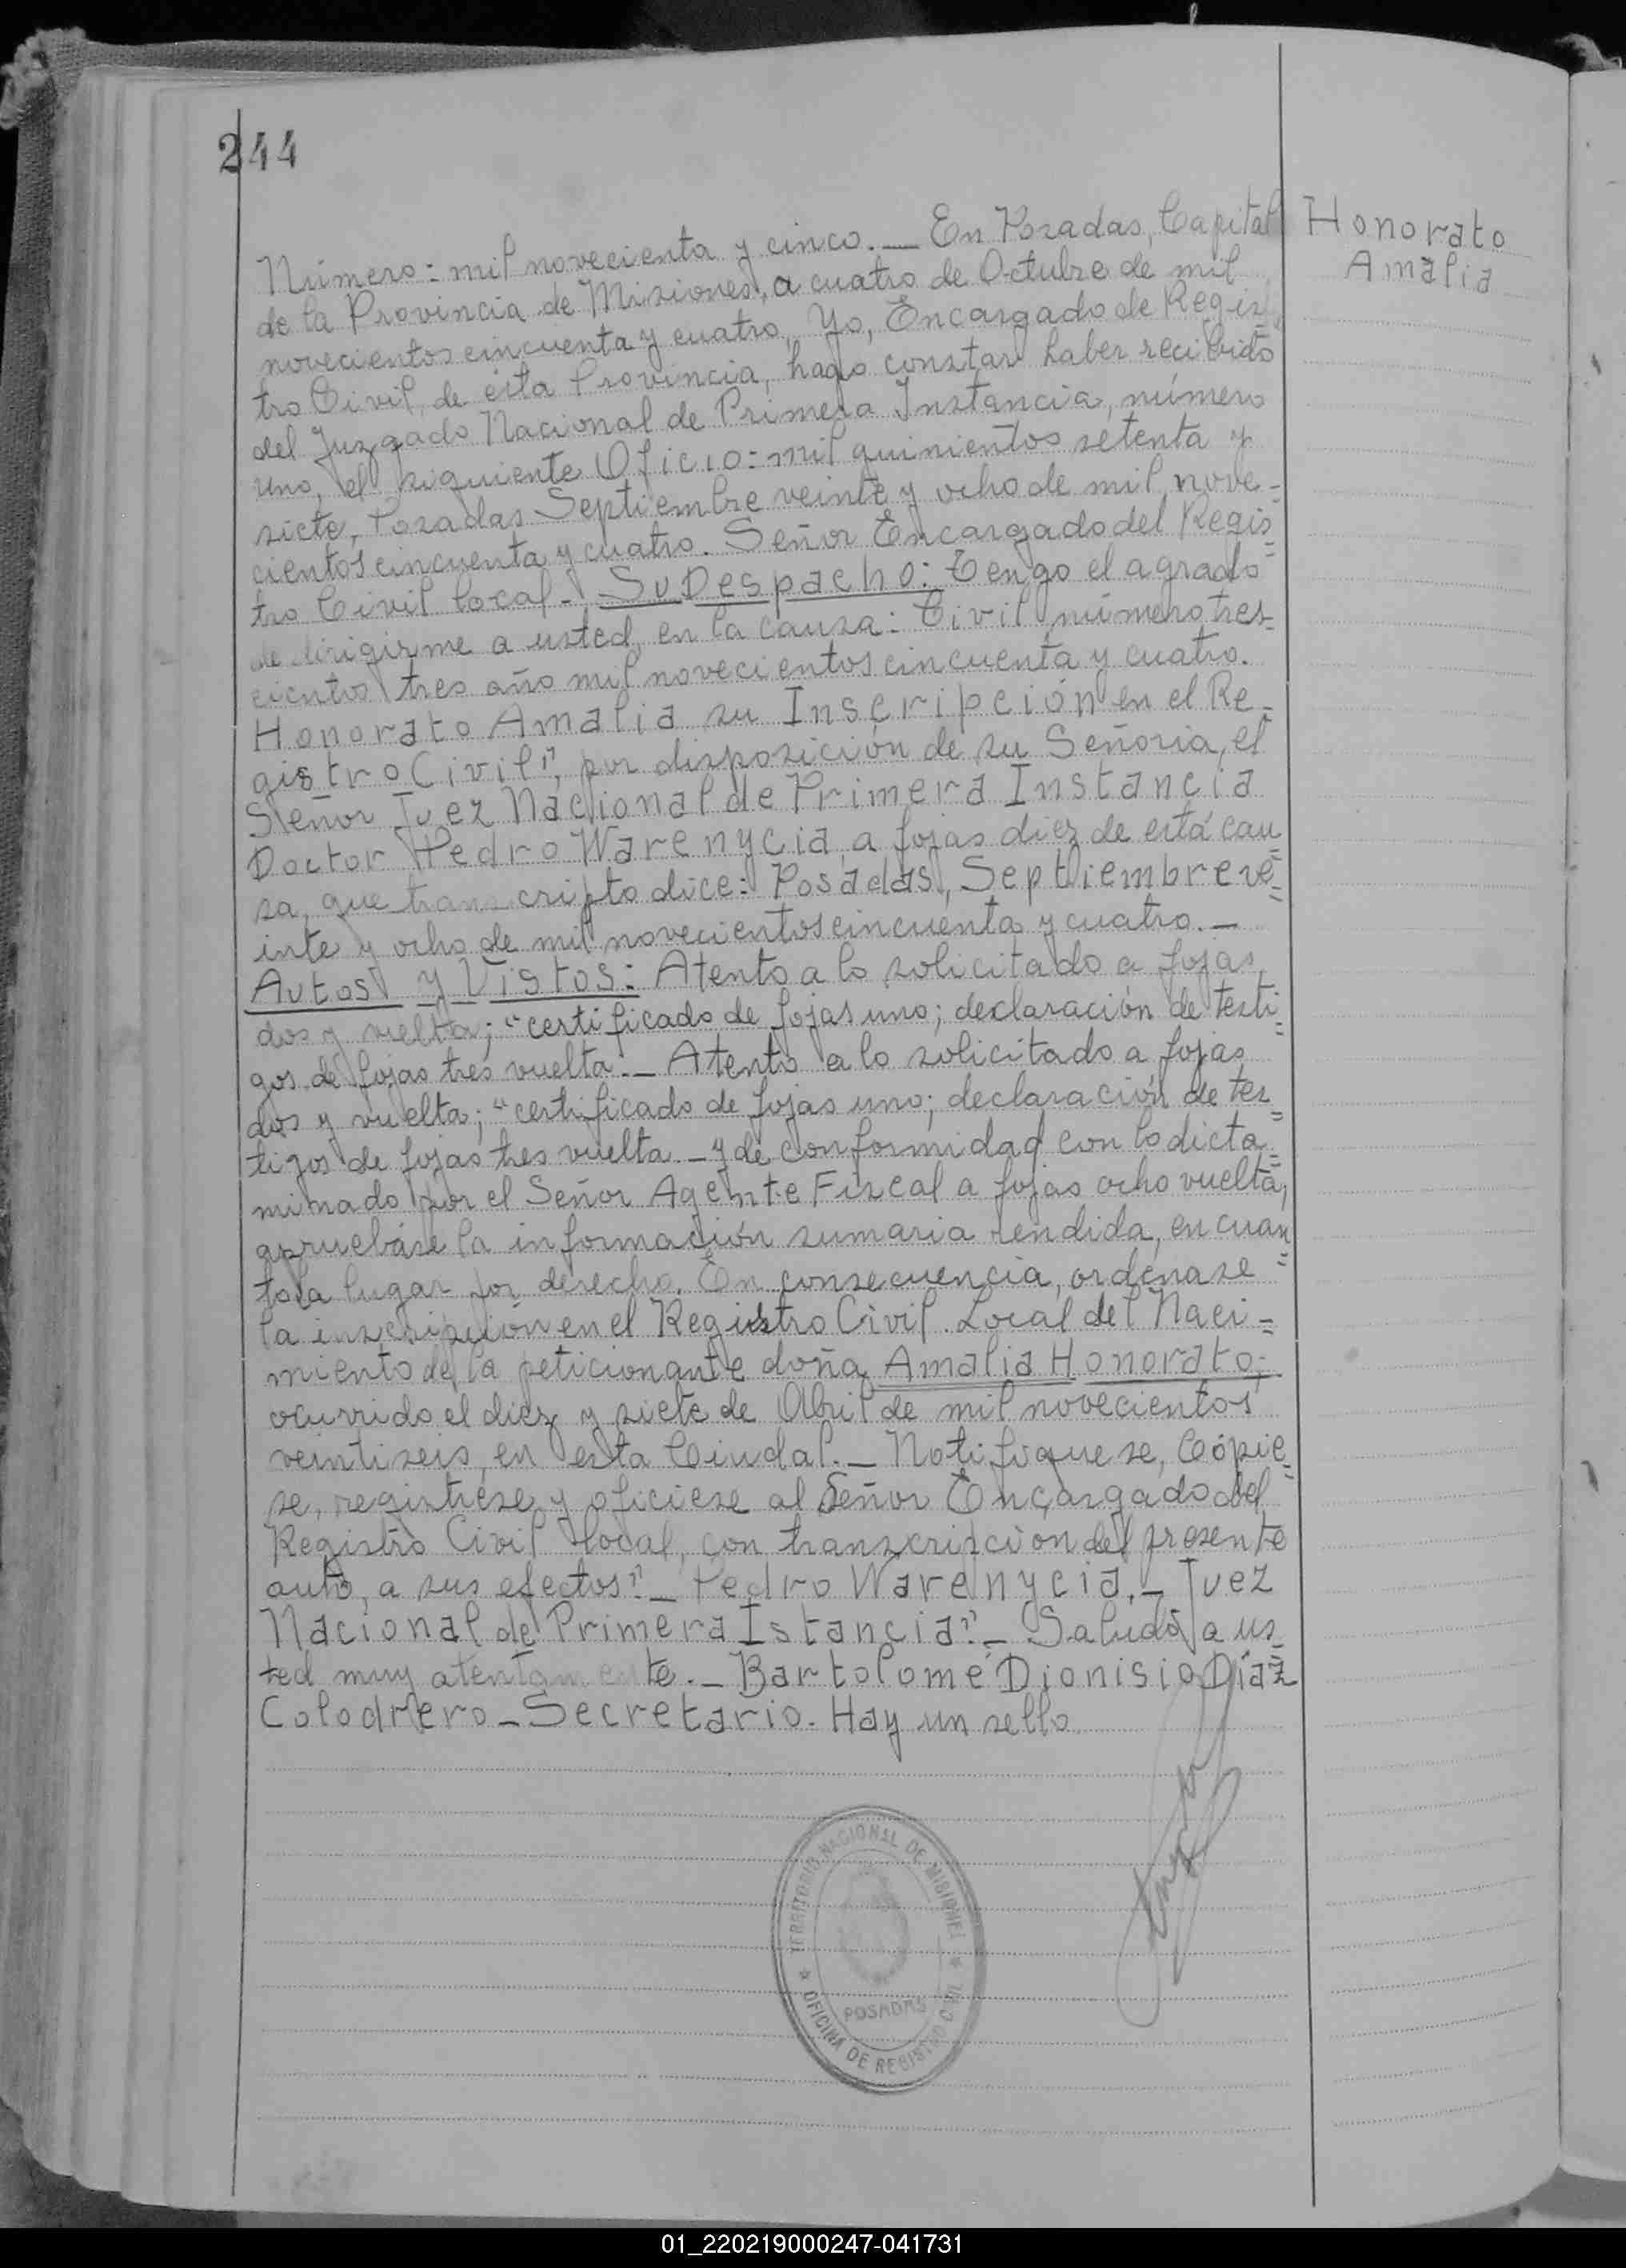 244
Honorato
Amalia
Número: mil novecienta y cinco. — En Posadas, Capital
de la Provincia de Misiones, a cuatro de Octubre de mil
novecientos cincuenta y cuatro, Yo, Encargado de Regis
tro Civil, de ésta Provincia, hago constar haber recibido
del Juzgado Nacional de Primera Instancia, número
uno, el siguiente Oficio: mil quinientos setenta y
siete, Posadas Septiembre veinte y ocho de mil nove-
cientos cincuenta y cuatro. Señor Encargado del Regis-
tro Civil local. Su Despacho: Tengo el agrado
de dirigirme a usted, en la causa: Civil número tres-
cientos tres año mil novecientos cincuenta y cuatro.
Honorato Amalia su Inscripción en el Re-
gistro Civil", por disposición de su Señoria, el
Señor Juez Nacional de Primera Instancia
Doctor Pedro Warenycia, a fojas diez de está cau-
sa, que transcripto dice: Posadas, Septiembre ve-
inte y ocho de mil novecientos cincuenta y cuatro. —
Autos y Vistos: Atento a lo solicitado a fojas
dos y vuelta; "certificado de fojas uno; declaración de testi-
gos de fojas tres vuelta. — Atento a lo solicitado a fojas
dos y vuelta; "certificado de fojas uno; declaración de tes-
tigos de fojas tres vuelta — y de conformidad con lo dicta-
minado por el Señor Agente Fiscal a fojas ocho vuelta,
apruebáse la información sumaria rendida, en cuan-
to ha lugar por derecho. En consecuencia, ordénase
la inscripción en el Registro Civil Local del Naci-
miento de la peticionante doña Amalia Honorato;
ocurrido el diez y siete de Abril de mil novecientos
veintiseis, en esta Ciudad. — Notifíquese, Cópie-
se, regístrese y ofíciese al Señor Encargado del
Registro Civil local, con transcripción del presente
auto, a sus efectos". — Pedro Warenycia. — Juez
Nacional de Primera Istancia". — Saludo a us-
ted muy atentamente. — Bartolomé Dionisio Díaz
Colodrero — Secretario. Hay un sello
TERRITORIO NACIONAL DE MISIONES
POSADAS
OFICINA DE REGISTRO CIVIL
01_220219000247-041731